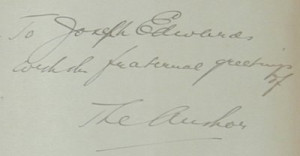 To Joseph Edwards
with the fraternal greetings
of
The Author